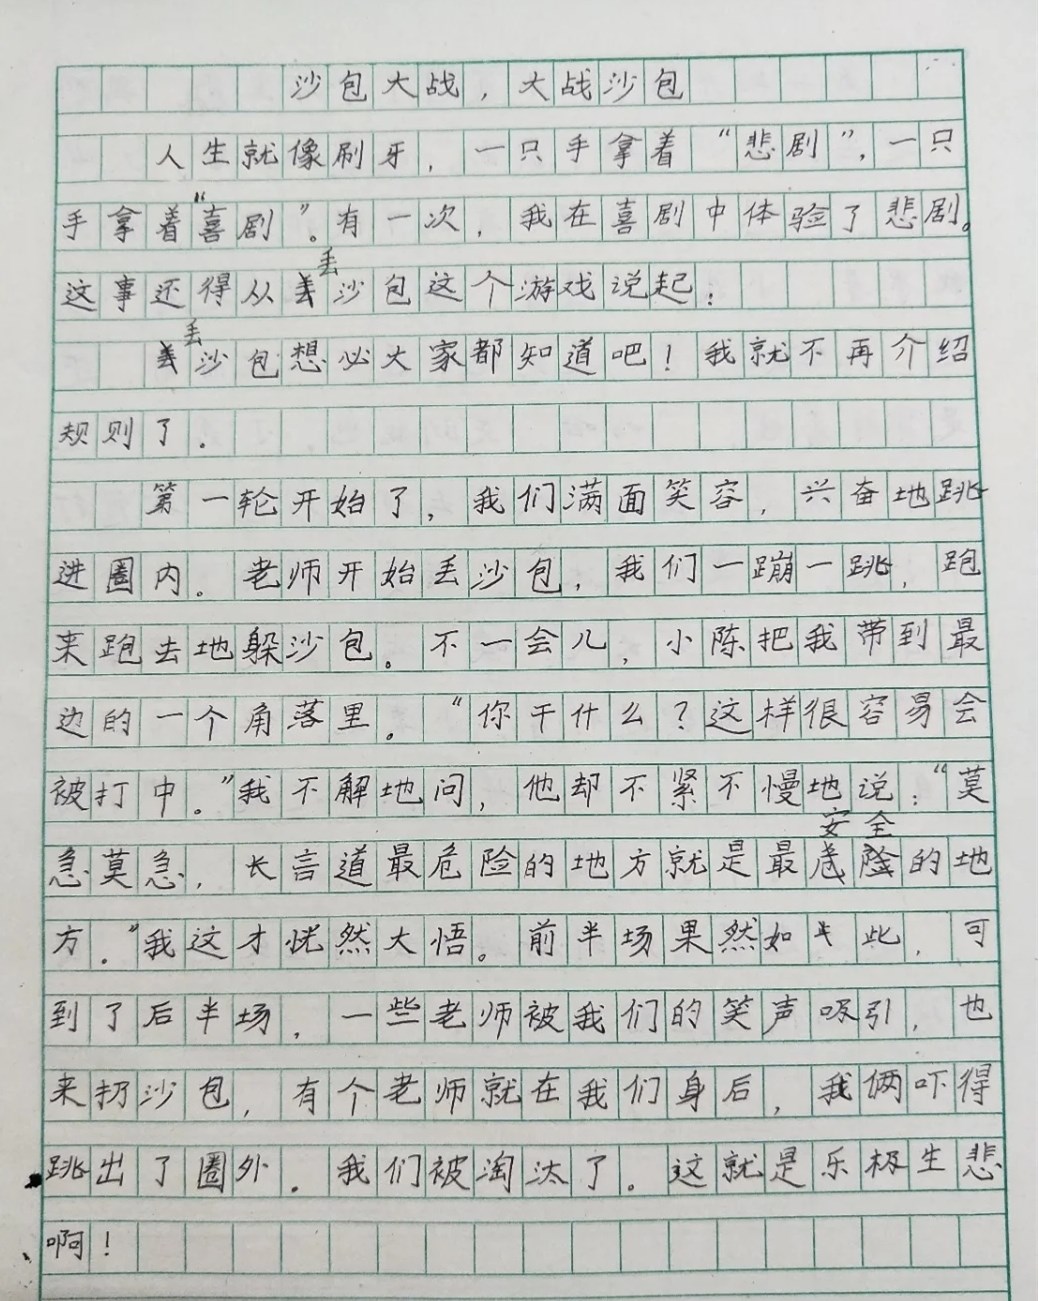 沙包大战，大战沙包
人生就像刷牙，一只手拿着“悲剧”，一只
手拿着“喜剧”。有一次，我在喜剧中体验了悲剧。
这事还得从丢沙包这个游戏说起：
丢沙包想必大家都知道吧！我就不再介绍
规则了。
第一轮开始了，我们满面笑容，兴奋地跳
进圈内。老师开始丢沙包，我们一蹦一跳，跑
来跑去地躲沙包。不一会儿，小陈把我带到最
边的一个角落里。“你干什么？这样很容易会
被打中。”我不解地问，他却不紧不慢地说：“莫
急莫急，长言道最危险的地方就是最安全的地
方。”我这才恍然大悟。前半场果然如此，可
到了后半场，一些老师被我们的笑声吸引，也
来扔沙包，有个老师就在我们身后，我俩吓得
跳出了圈外。我们被淘汰了。这就是乐极生悲
啊！